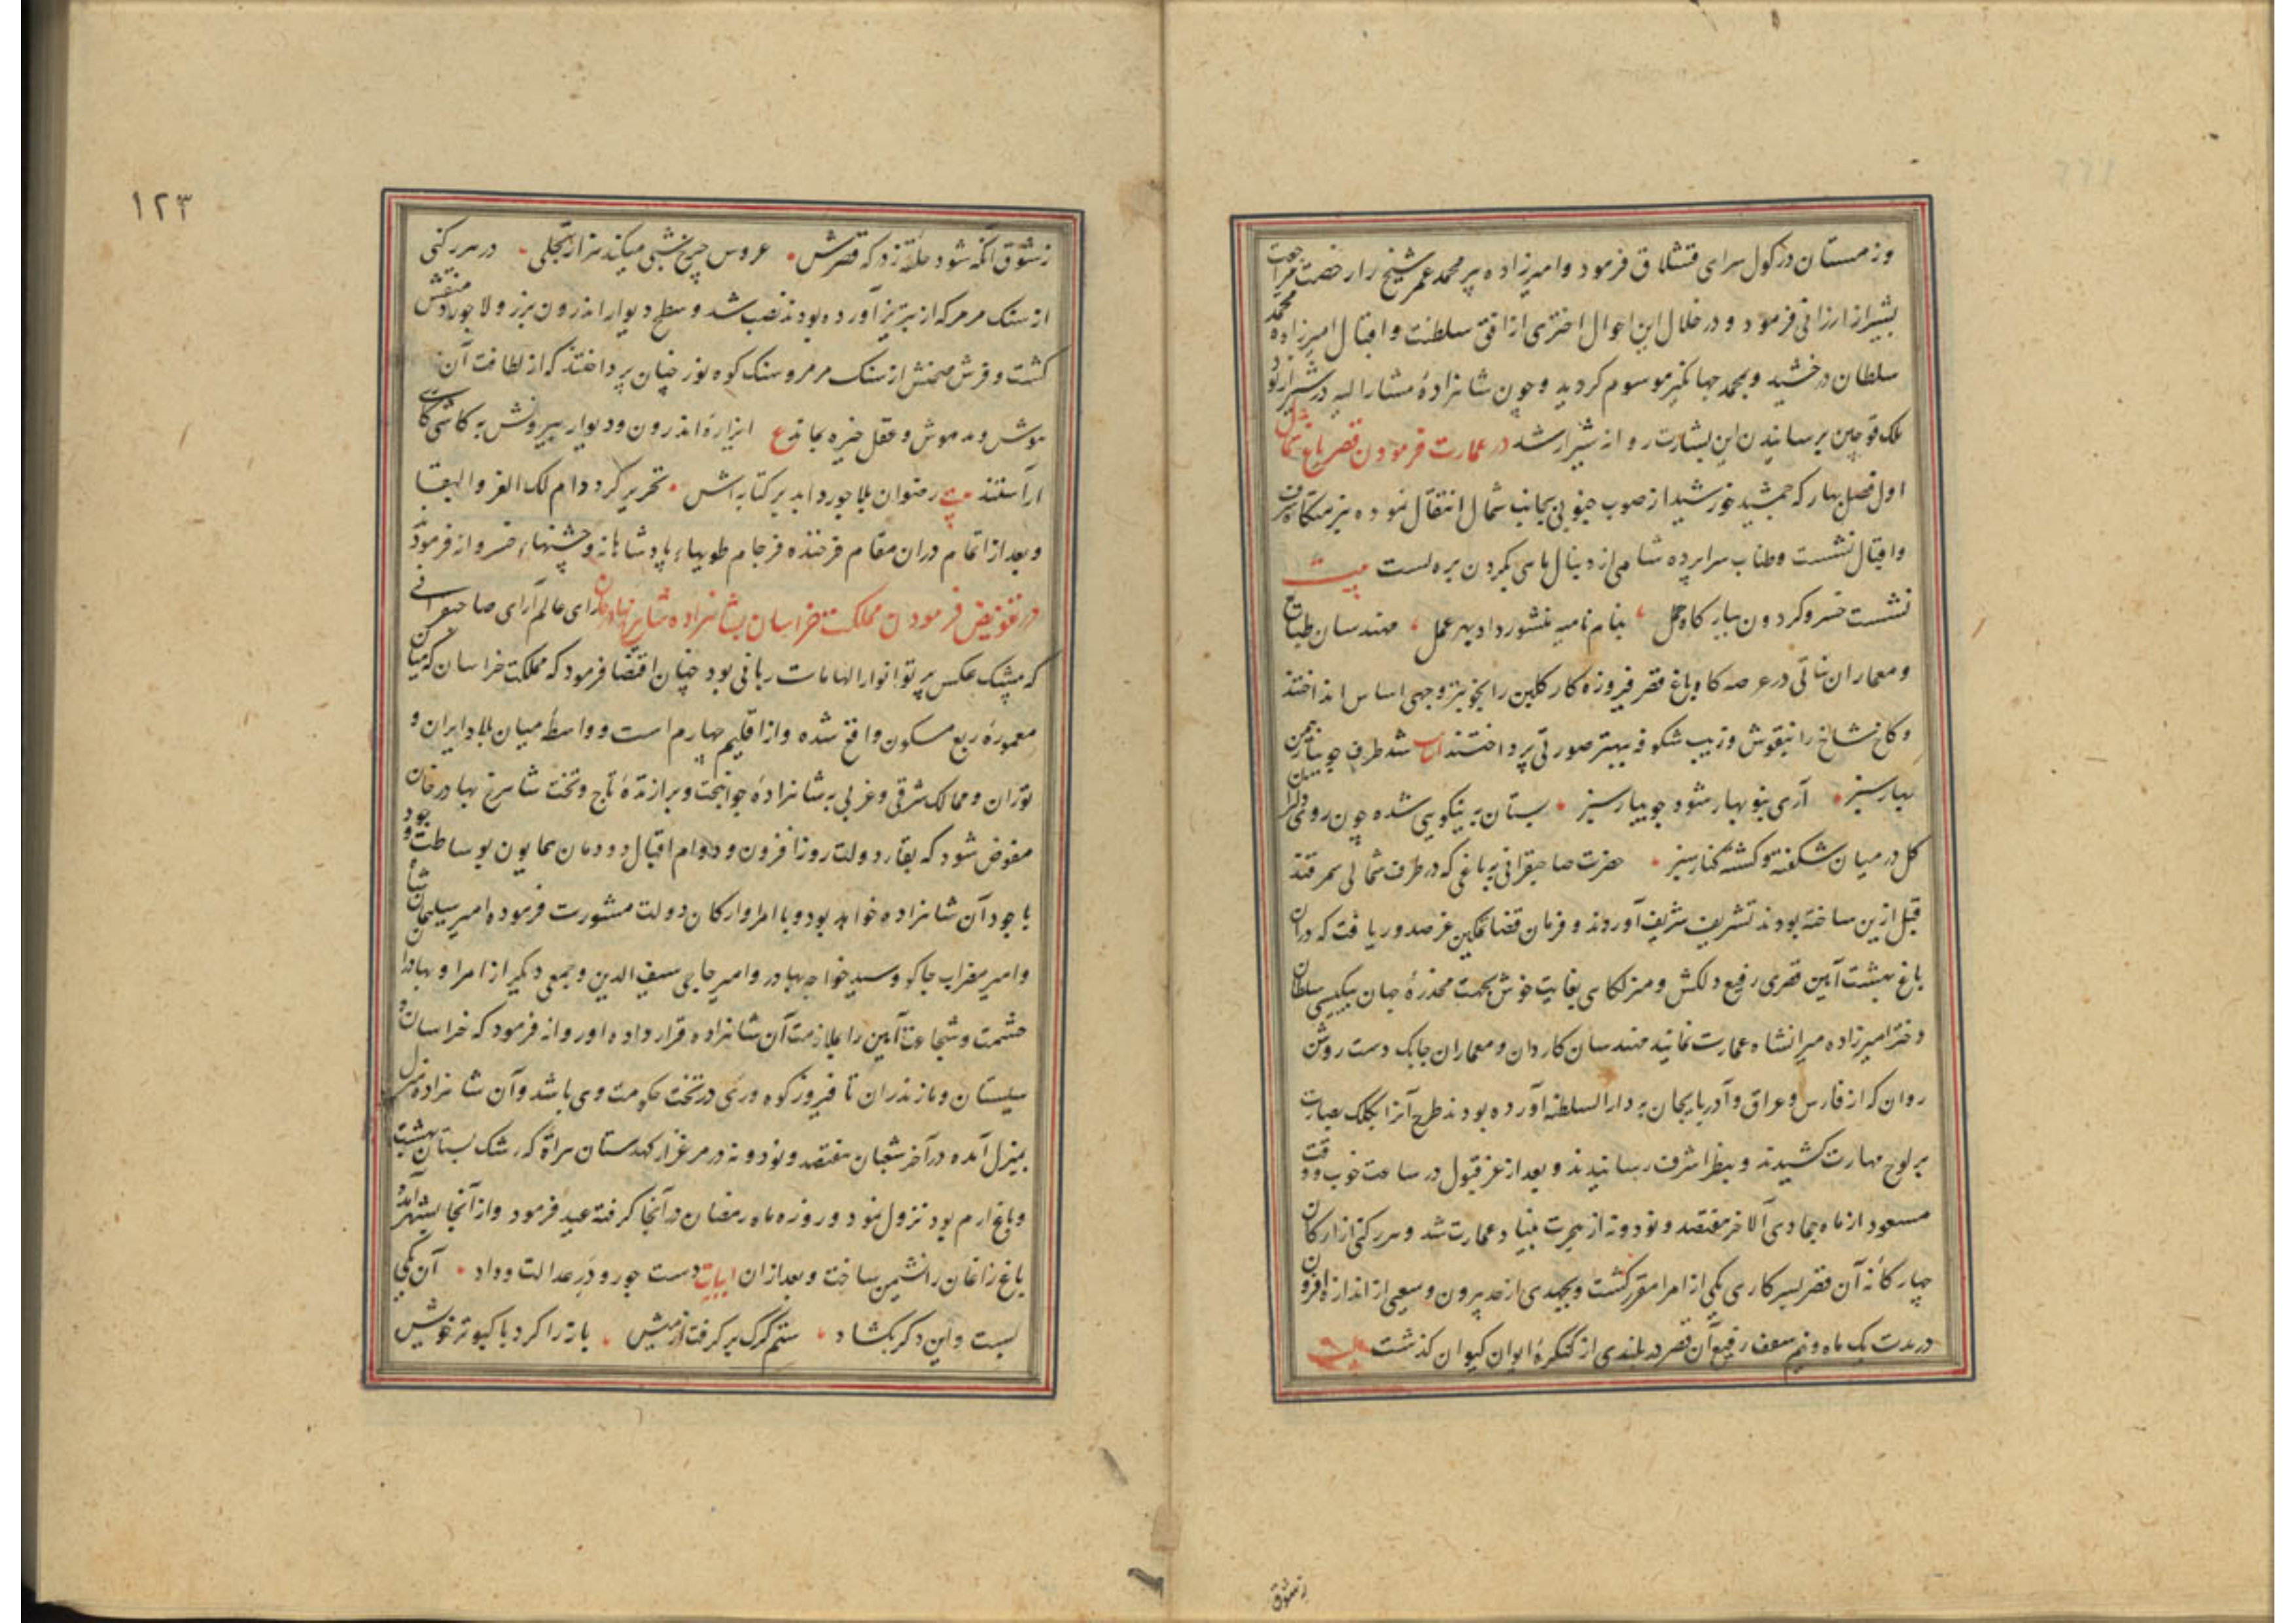 و زمستان در کول سرای قشلاق فرمود و امیرزاده پیر محمد عمر شیخ را رخصت مراجعت
بشیراز ارزانی فرمود و در خلال این احوال اختری از افق سلطنت و اقبال امیرزاده محمد
سلطان درخشید و بمحمد جهانکیر موسوم کردید و چون شاهزادهٔ مشارالیه در شیراز بود
ملک قوچین برسانیدن این بشارت روانه شیراز شد در عمارت فرمودن قصر باغ شمال
اول فصل بهار که جمشید خورشید از صوب جنوبی بجانب شمال انتقال نموده بر متکای شرف
و اقبال نشست و طناب سراپرده شاهی از دنبال ماهی بکردن بره بست بیت
نشست خسرو کردون ببارکاه حمل بنام نامیه منشور داد بهر عمل مهندسان طبایع
و معماران نباتی در عرصه کاه باغ قصر فیروزه کار کلبن را بخوبتر وجهی اساس انداختند
و کاخ شاخ را بنقوش و زیب شکوفه ببهتر صورتی پرداختند ابیات شد طرف جویبار چمن
ببهار سبز آری بنوبهار شود جویبار سبز بستان به نیکویی شده چون روی دلبران
کل در میان شکفته و کشته کنار سبز حضرت صاحبقرانی به باغی که در طرف شمالی سمرقند
قبل ازین ساخته بودند تشریف شریف آوردند و فرمان قضا تمکین عز صدور یافت که در آن
باغ بهشت آیین قصری رفیع دلکش و منزلکاهی بغایت خوش بجهت مخدرهٔ جهان بیکیسی سلطان
دختر امیرزاده میرانشاه عمارت نمایند مهندسان کاردان و معماران چابک دست روشن
روان که از فارس و عراق و آذربایجان به دارالسلطنه آورده بودند طرح آنرا بکلک بصارت
بر لوح مهارت کشیدند و بنظر اشرف رسانیدند و بعد از عز قبول در ساعت خوب و وقت
مسعود از ماه جمادی الاخر هفتصد و نود و نه از هجرت بنیاد عمارت شد و هر رکنی از ارکان
چهارکانه آن قصر بسرکاری یکی از امرا مقرر کشت و بجهدی از حد بیرون و سعیی از اندازه افزون
در مدت یک ماه و نیم سقف رفیع آن قصر در بلندی از کنکرهٔ ایوان کیوان کذشت بیت
ز شوق
۱۲۳
ز شوق آنکه شود حلقه زد که قصرش عروس چرخ بشبی میکند هزار تجلی در هر رکنی
از سنک مرمر که از تبریز آورده بودند نصب شد و سطح دیوار اندرون بزر و لاجورد منقش
کشت و فرش صحنش از سنک مرمر و سنک کوه نور چنان پرداختند که از لطافت آن
هوش مدهوش و عقل خیره بماند ع ایزارهٔ اندرون و دیوار بیرونش به کاشی کاری
آراستند بیت رضوان بلاجورد ابد بر کتابه اش تحریر کرد دام لک العز و البقا
و بعد از اتمام دران مقام فرخنده فرجام طویهاء پادشاهانه و جشنهاء خسروانه فرمود
در تفویض فرمودن مملکت خراسان بشاهزاده شاهرخ بهادر خان رای عالم آرای صاحبقرانی
که بیشک عکس پرتو انوار الهامات ربانی بود چنان اقتضا فرمود که مملکت خراسان که میان
معمورهٔ ربع مسکون واقع شده و از اقلیم چهارم است و واسطهٔ میان بلاد ایران و
توران و ممالک شرقی و غربی به شاهزادهٔ جوانبخت و برازندهٔ تاج و تخت شاهرخ بهادر خان
مفوض شود که بقاء دولت روز افزون و دوام اقبال دودمان همایون بوساطت وجود
با جود آن شاهزاده خواهد بود و با امرا و ارکان دولت مشورت فرموده امیر سلیمان شاه
و امیر مضراب جاکو و سید خواجه بهادر و امیر حاجی سیف الدین و جمعی دیکر از امرا و بهادران
حشمت و شجاعت آیین را بملازمت آن شاهزاده قرار داده او را روانه فرمود که خراسان و
سیستان و مازندران تا فیروزکوه و ری در تخت حکومت وی باشد و آن شاهزاده منزل
بمنزل آمده در آخر شعبان هفتصد و نود و نه در مرغزار کهدستان هراة که رشک بستان بهشت
و باغ ارم بود نزول نمود و روزه ماه رمضان در آنجا کرفته عید فرمود و از آنجا بشهر آمد و
باغ زاغان را نشیمن ساخت و بعد از ان ابیات دست جور و در عدالت و داد آن یکی
بست و این دکر بکشاد ستم کرک بر کرفت از میش باز را کرد با کبوتر خویش